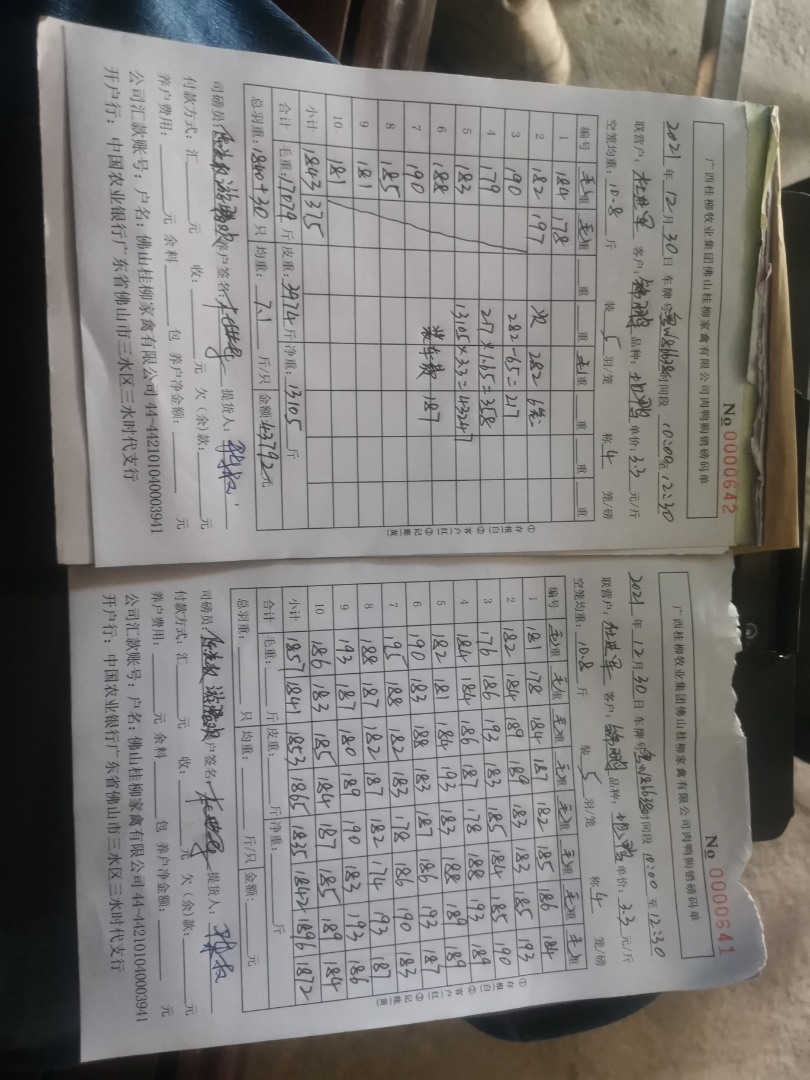 广西桂柳牧业集团佛山桂柳家禽有限公司肉鸭购销磅码单
No 0000642
2021 年 12 月 30 日 车牌号 时间段 10:00 至 12:30
联营户: 客户: 品种: 单价: 3.3 元/斤
空笼均重: 10.8 斤 装 5 羽/笼 称 4 笼/磅
编号 毛重 毛重 重 重 毛重 重 重 重
1 184 178
2 182 197 次 282
3 190 282-65=217
4 179 217×1.65=358
5 183 13105×3.3=43247
6 188 装车数 187
7 190
8 185
9 181
10 181
小计 1843 375
合计 毛重: 17079 斤 皮重: 3974 斤 净重: 13105 斤
总羽重: 1840+30 只 均重: 7.1 斤/只 金额: 43792 元
司磅员: 养户签名: 提货人:
付款方式: 汇 元 收: 元 欠(余)款: 元
养户费用: 元 余料 包 养户净金额: 元
公司汇款账号: 户名: 佛山桂柳家禽有限公司 44-442101040003941
开户行: 中国农业银行广东省佛山市三水区三水时代支行
①存根(白) ②客户(红) ③记账(黄)
广西桂柳牧业集团佛山桂柳家禽有限公司肉鸭购销磅码单
No 0000641
2021 年 12 月 30 日 车牌号 时间段 10:00 至 12:30
联营户: 客户: 品种: 单价: 3.3 元/斤
空笼均重: 10.8 斤 装 5 羽/笼 称 4 笼/磅
编号 毛重 毛重 毛重 毛重 毛重 毛重 毛重 毛重
1 181 178 184 187 182 185 186 184
2 182 184 189 189 183 183 185 193
3 176 186 193 183 185 184 185 190
4 184 184 186 187 178 188 193 189
5 182 181 184 193 183 188 189 189
6 190 183 188 183 187 186 193 187
7 195 188 182 183 178 186 190 183
8 188 187 182 187 182 174 193 187
9 193 187 180 189 190 183 193 186
10 186 183 185 184 187 185 189 184
小计 1857 1841 1853 1865 1835 1842 1896 1872
合计 毛重: 斤 皮重: 斤 净重: 斤
总羽重: 只 均重: 斤/只 金额: 元
司磅员: 养户签名: 提货人:
付款方式: 汇 元 收: 元 欠(余)款: 元
养户费用: 元 余料 包 养户净金额: 元
公司汇款账号: 户名: 佛山桂柳家禽有限公司 44-442101040003941
开户行: 中国农业银行广东省佛山市三水区三水时代支行
①存根(白) ②客户(红) ③记账(黄)